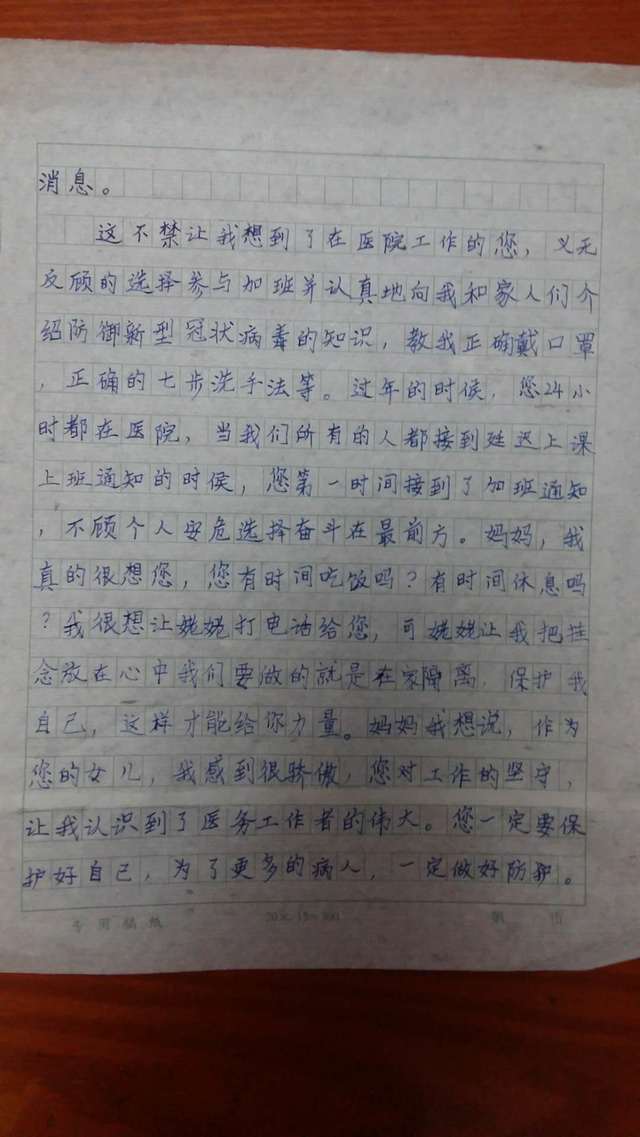 消息。
这不禁让我想到了在医院工作的您，义无
反顾的选择参与加班并认真地向我和家人们介
绍防御新型冠状病毒的知识，教我正确戴口罩
，正确的七步洗手法等。过年的时候，您24小
时都在医院，当我们所有的人都接到延迟上课
上班通知的时侯，您第一时间接到了加班通知
，不顾个人安危选择奋斗在最前方。妈妈，我
真的很想您，您有时间吃饭吗？有时间休息吗
？我很想让姥姥打电话给您，可姥姥让我把挂
念放在心中我们要做的就是在家隔离，保护我
自己，这样才能给你力量。妈妈我想说，作为
您的女儿，我感到很骄傲，您对工作的坚守，
让我认识到了医务工作者的伟大。您一定要保
护好自己，为了更多的病人，一定做好防护。
专用稿纸 20×15=300 第 页